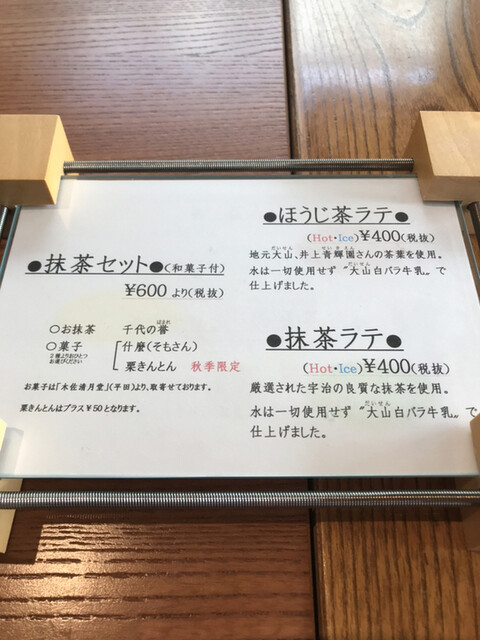 ●抹茶セット●(和菓子付)
¥600 より(税抜)
○お抹茶 千代の誉
ほまれ
○菓子
2種よりおひとつ
お選びください
什麼(そもさん)
栗きんとん 秋季限定
お菓子は「木佐清月堂」(平田)より、取寄せております。
栗きんとんはプラス¥50となります。
●ほうじ茶ラテ●
(Hot・Ice)¥400(税抜)
だいせん せいきえん
地元大山、井上青輝園さんの茶葉を使用。
だいせん
水は一切使用せず〝大山白バラ牛乳〟で
仕上げました。
●抹茶ラテ●
(Hot・Ice)¥400(税抜)
厳選された宇治の良質な抹茶を使用。
だいせん
水は一切使用せず〝大山白バラ牛乳〟で
仕上げました。